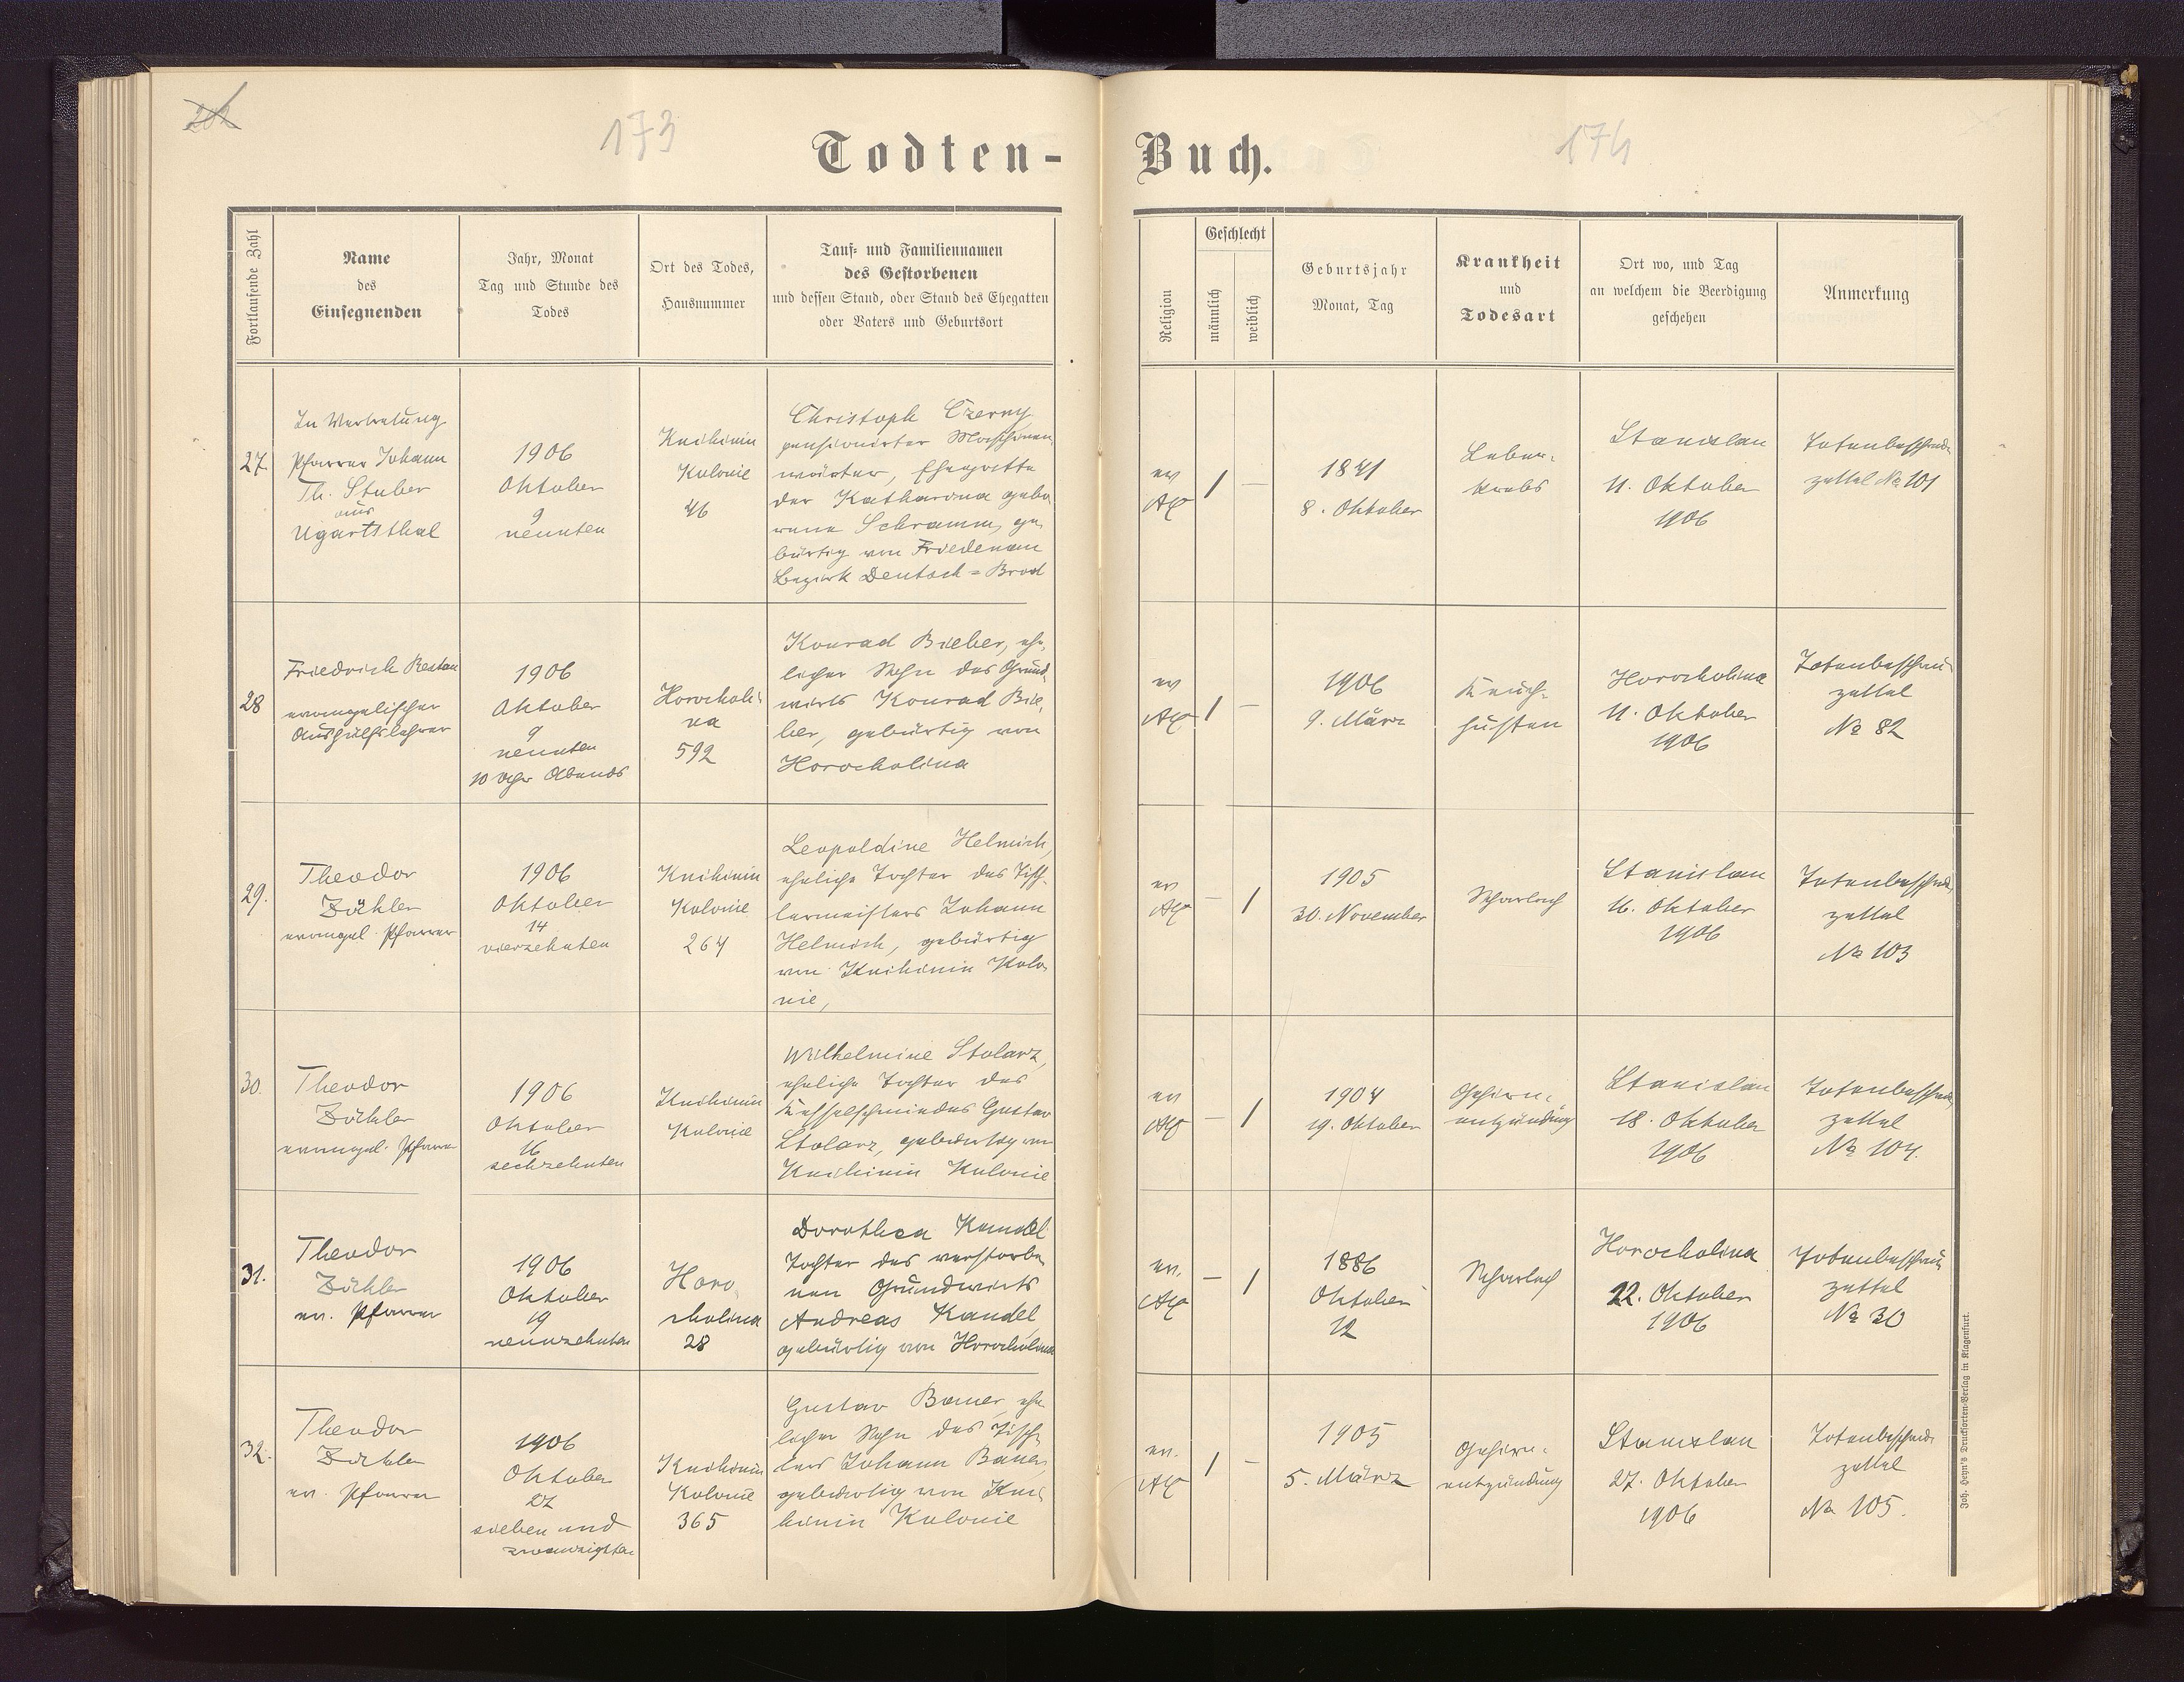 202
173
174
Todten-
Buch.
Fortlaufende Zahl
Name
des
Einsegnenden
Jahr, Monat
Tag und Stunde des
Todes
Ort des Todes,
Hausnummer
Tauf- und Familiennamen
des Gestorbenen
und dessen Stand, oder Stand des Ehegatten
oder Vaters und Geburtsort
Religion
Geschlecht
männlich
weiblich
Geburtsjahr
Monat, Tag
Krankheit
und
Todesart
Ort wo, und Tag
an welchem die Beerdigung
geschehen
Anmerkung
27.
In Vertretung
Pfarrer Johann
Th. Stuber
aus
Ugartsthal
1906
Oktober
9
neunten
Knihinin
Kolonie
46
Christoph Czerny
pensionirter Maschinen,
wärter, Ehegatte
der Katharina gebo,
rene Schramm, ge,
bürtig von Friedenau
Bezirk Deutsch=Brod
ev
AC
1
—
1841
8. Oktober
Leber-
krebs
Stanislau
11. Oktober
1906
Totenbeschau
zettel No 101
28
Friedrich Restau
evangelischer
Aushülfslehrer
1906
Oktober
9
neunten
10 Uhr Abends
Horocholi-
na
592
Konrad Bieber, ehe,
licher Sohn des Grund,
wirts Konrad Bie,
ber, gebürtig von
Horocholina
ev
AC
1
—
1906
9. März
Keuch-
husten
Horocholina
11. Oktober
1906
Totenbeschau
zettel
No 82
29.
Theodor
Zöckler
evangel. Pfarrer
1906
Oktober
14
vierzehnten
Knihinin
Kolonie
264
Leopoldine Helmich,
eheliche Tochter des Tisch-
lermeisters Johann
Helmich, gebürtig
von Knihinin Kolo,
nie,
ev
AC
—
1
1905
30. November
Scharlach
Stanislau
16. Oktober
1906
Totenbeschau,
zettel
No 103
30.
Theodor
Zöckler
evangel. Pfarrer
1906
Oktober
16
sechzehnten
Knihinin
Kolonie
Wilhelmine Stolarz,
eheliche Tochter des
Kesselschmiedes Gustav
Stolarz, gebürtig von
Knihinin Kolonie
ev
AC
—
1
1904
19. Oktober
Gehirn-
entzündung
Stanislau
18. Oktober
1906
Totenbeschau,
zettel
No 104.
31.
Theodor
Zöckler
ev. Pfarrer
1906
Oktober
19
neunzehnten
Horo,
cholina
28
Dorothea Kandel
Tochter des verstorbe,
nen Grundwirts
Andreas Kandel,
gebürtig von Horocholina
ev.
AC
—
1
1886
Oktober
12
Scharlach
Horocholina
22. Oktober
1906
Totenbeschau
zettel
No 30
32.
Theodor
Zöckler
ev. Pfarrer
1906
Oktober
27
sieben und
zwanzigsten
Knihinin
Kolonie
365
Gustav Bauer, ehe
licher Sohn des Tisch,
lers Johann Bauer,
gebürtig von Kni,
hinin Kolonie
ev.
AC
1
—
1905
5. März
Gehirn-
entzündung
Stanislau
27. Oktober
1906
Totenbeschau
zettel
No 105.
Joh. Heyn's Drucksorten-Verlag in Klagenfurt.